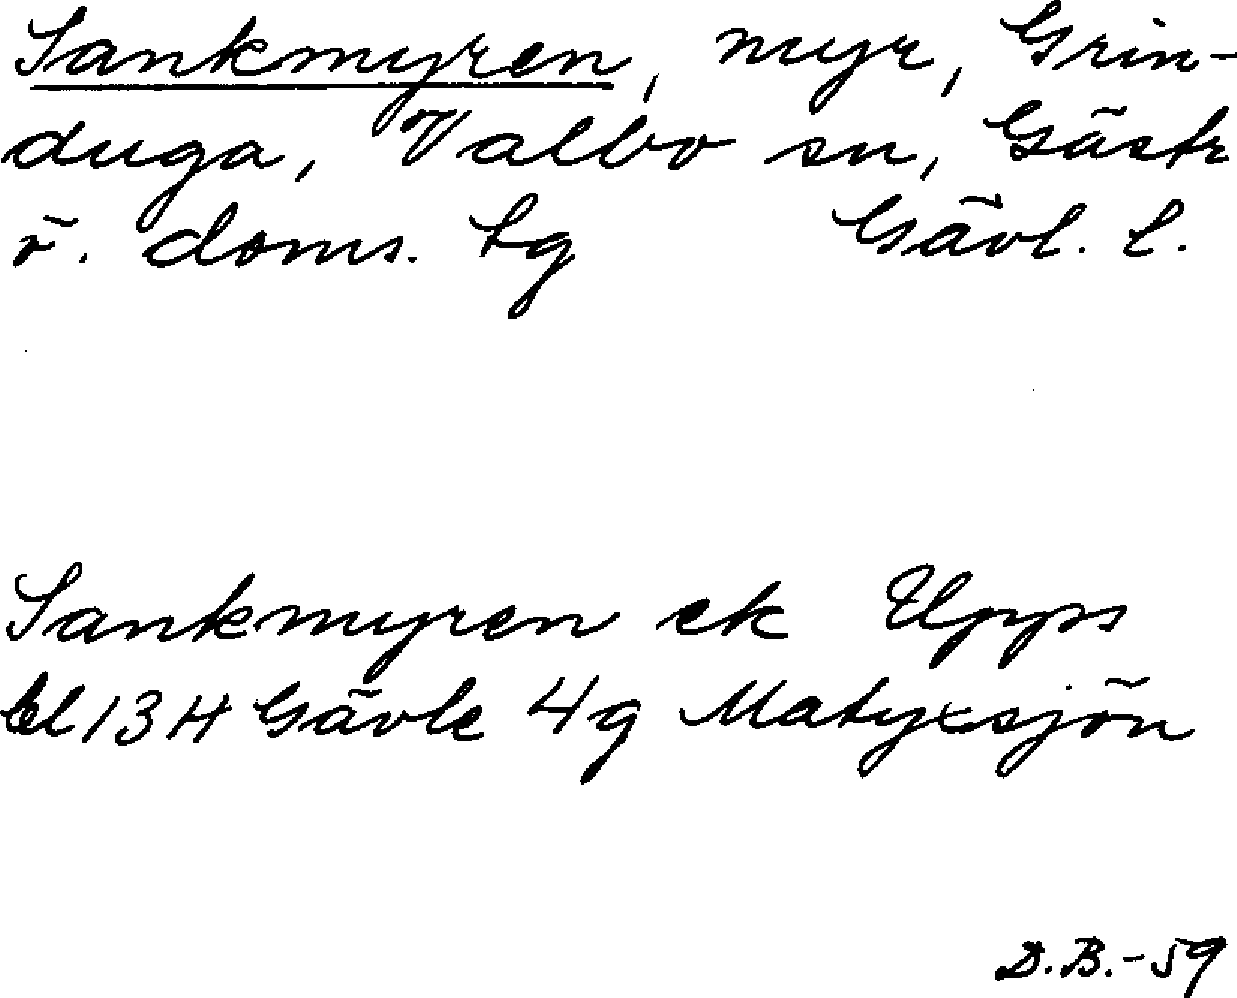 Sankmyren, myr, Grin-
duga, Valbo sn, Gästr
ö. doms. tg Gävl. l.
Sankmyren ek Upps
bl 13 H Gävle 4g Matyxsjön
D.B.-59